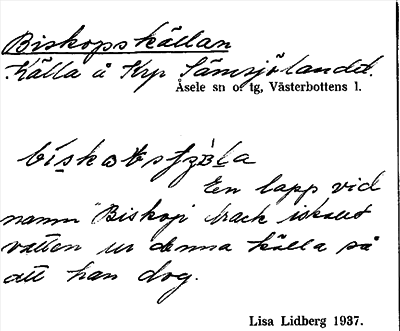 Biskopskällan
Källa å Krp Sämsjölandet.
Åsele sn o. tg, Västerbottens l.
En lapp vid
namn "Biskop" drack iskallt
vatten ur denna källa så
att han dog.
Lisa Lidberg 1937.